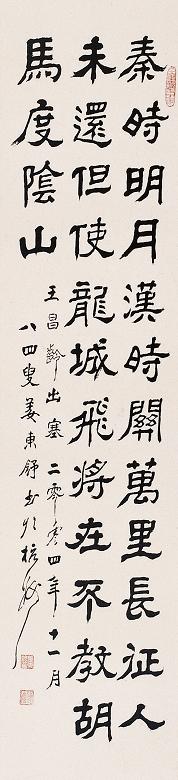 秦時明月漢時關萬里長征人
未還但使龍城飛將在不教胡
馬度陰山
王昌齡出塞二零零四年十一月
八四叟姜東舒書於杭州